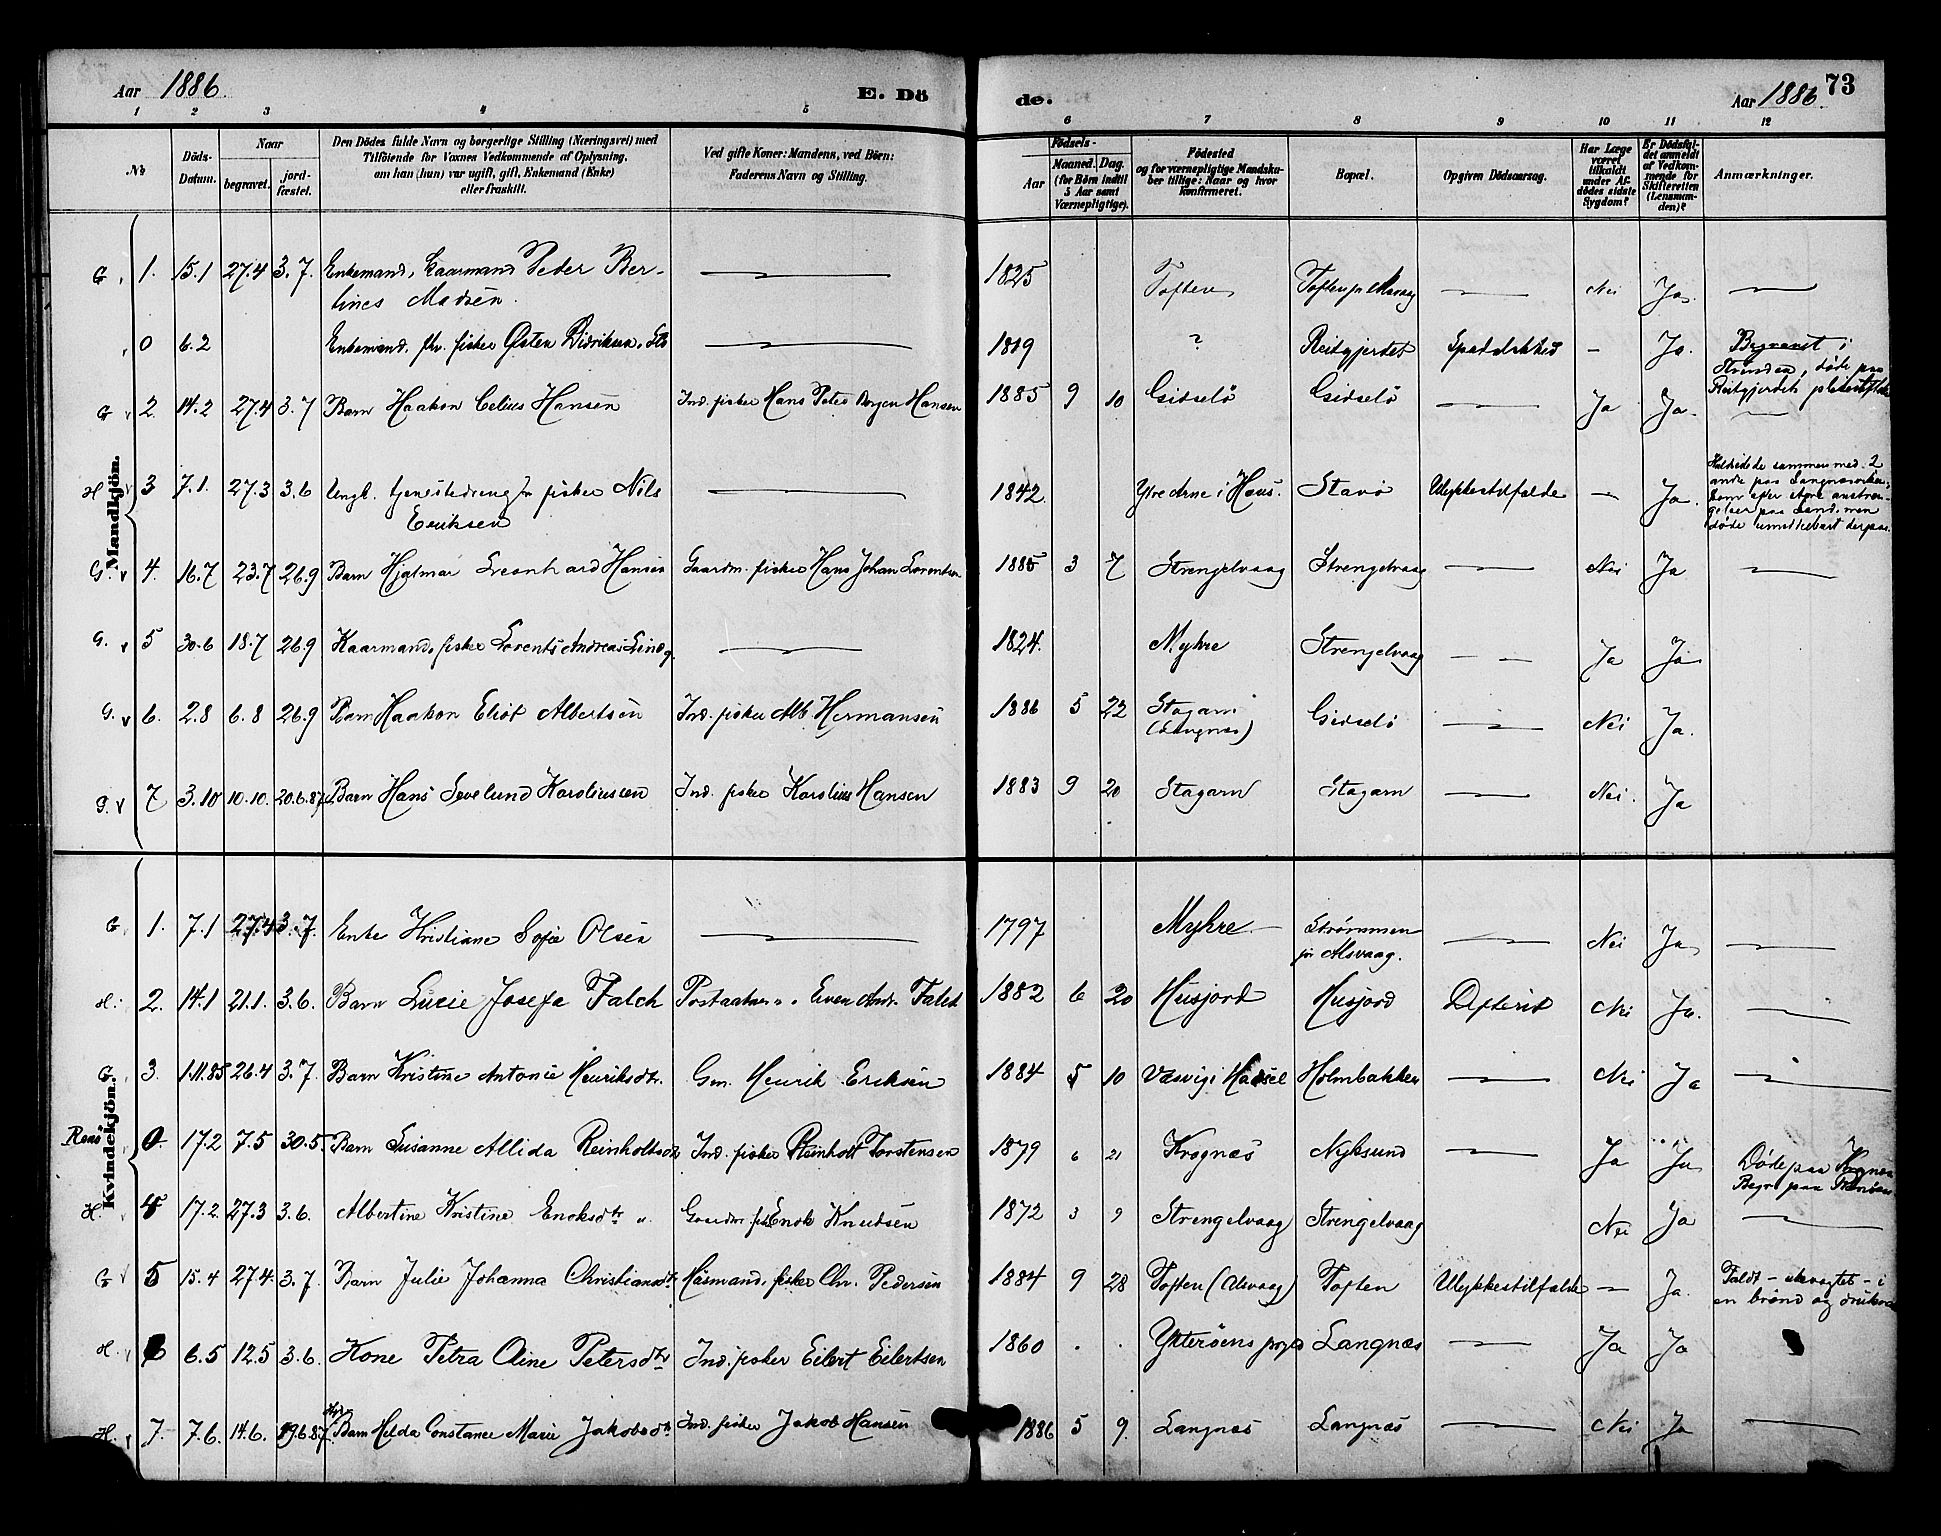 Aar 1886. E. Dö
de. Aar 1886. 73
1 2 3 4 5 6 7 8 9 10 11 12
No
Döds-Datum.
Naar
begravet. jord-fæstet.
Den Dödes fulde Navn og borgerlige Stilling (Næringsvei) med
Tilföiende for Voxnes Vedkommende af Oplysning,
om han (hun) var ugift, gift, Enkemand (Enke)
eller fraskilt.
Ved gifte Koner: Mandens, ved Börn:
Faderens Navn og Stilling.
Födsels-
Aar Maaned. Dag.
(for Börn indtil
5 Aar samt
Værnepligtige).
Födested
og for værnepligtige Mandska-
ber tillige: Naar og hvor
konfirmeret.
Bopæl.
Opgiven Dödsaarsag.
Har Læge
været
tilkaldt
under Af-
dödes sidste
Sygdom?
Er Dödsfal-
det anmeldt
af Vedkom-
mende for
Skifteretten
(Lensman-
den)?
Anmærkninger.
Mandkjön.
G 1. 15.1 27.4 3.7. Enkemand, Kaarmand Peder Ber- 1825 Toften Toften Nei Ja
tines Madsen.
0 6.2 Enkemand, fhv. fisker Østen Didriksen 1819 ? Reitgjerdet Spedalskhed - Ja. Begravet i
Strinden, døde paa
Reitgjerdet
G 2 14.2 27.4 3.7 Barn Haakon Celius Hansen Ind. fisker Hans Peter Hansen 1885 9 10 Gidselö Gidselö Ja Ja.
H 3 7.1. 27.3 3.6 Ungk. tjenestedreng fisker Nils 1842 Ytre Arne i Haus. Stavö Ulykkestilfælde - Ja.
Eriksen
sammen med 2
andre paa
paa Land, men
døde umiddelbart derpaa.
G. 4. 16.7 23.7 26.9 Barn Hjalmar Leonhard Hansen Gaardm. fisker Hans Johan Lorentsen 1885 3 7 Strengelvaag Strengelvaag Nei Ja
G. 5 30.6 18.7 26.9 Kaarmand, fisker Lorents Andreas 1824. Myhre Strengelvaag Ja Ja
G. 6. 2.8 6.8 26.9 Barn Haakon Eliot Albertsen Ind. fisker Alb. Hermansen 1886 5 22 Stagarn Gidselö Nei Ja.
(Langnes)
G. 7 3.10 10.10. 20.6.87. Barn Hans Sevelund Karoliussen Ind. fisker Karolius Hansen 1883 9 20 Stagarn Stagarn Nei. Ja
Kvindekjön.
G. 1. 7.1 27.4 3.7. Enke Kristiane Sofie Olsen 1797 Myhre Strømmen Nei Ja
pr Alsvaag.
H. 2. 14.1 21.1. 3.6. Barn Lucie Josefa Falch Even Andr. Falch 1882 6 20 Husjord Husjord Difterit Nei Ja.
G. 3. 1.11.85 26.4 3.7. Barn Kristine Antonie Henriksdtr. Gm. Henrik Eriksen 1884 5 10 Vaavig i Hadsel Holmbakken Nei Ja
0. 17.2 7.5 30.5. Barn Susanne Allida Reinholtsdtr Ind. fisker Reinholt Torstensen 1879 6 21 Krognæs Nyksund Ja Ja Døde paa Krognæs
Begr. paa
H. 4 17.2. 27.3 3.6. Albertine Kristine Enoksdtr " Gaardm. fisk. Enok Knudsen 1872 3 9 Strengelvaag Strengelvaag Nei Ja
G 5 15.4 27.4. 3.7. Barn Julie Johanna Christiansdtr. Husmand, fisker Chr. Pedersen 1884 9 28 Toften (Alsvaag) Toften Ulykkestilfælde - Ja. Faldt - uvagtet - i
en brønd og druknede
H. 6 6.5 12.5 3.6. Kone Petra Oline Petersdtr Ind. fisker Eilert Eilertsen 1860 . . Ytterøens prgjd Langnæs Ja Ja
H. 7. 7.6. 14.6. 19.6.87. Barn Helda Constance Marie Jakobsdtr Ind. fisker Jakob Hansen 1886 5 9. Langnæs Langnæs Nei Ja